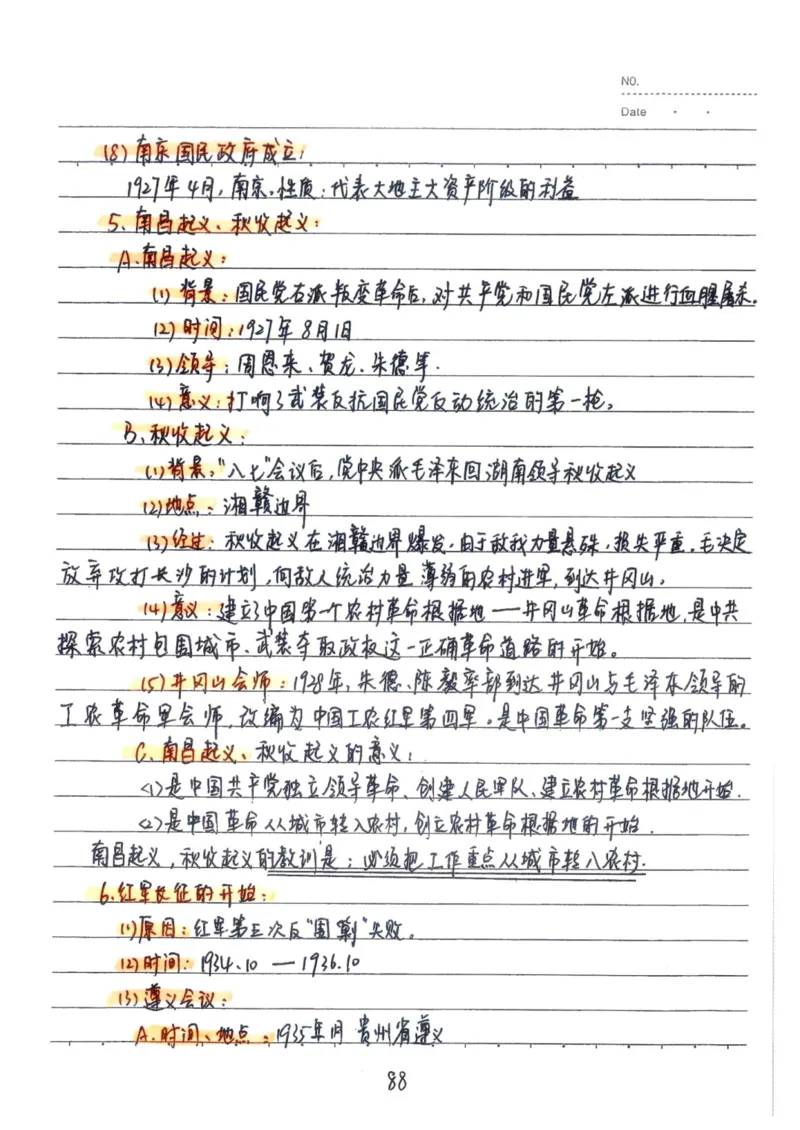 NO.
Date
(8) 南京国民政府成立:
1927年4月,南京。性质:代表大地主大资产阶级的利益
5、南昌起义、秋收起义:
A.南昌起义:
(1)背景:国民党右派叛变革命后,对共产党和国民党左派进行血腥屠杀。
(2)时间:1927年8月1日
(3)领导:周恩来、贺龙、朱德等.
(4)意义:打响了武装反抗国民党反动统治的第一枪。
B、秋收起义:
(1)背景:"八七"会议后,党中央派毛泽东回湖南领导秋收起义
(2)地点:湘赣边界
(3)经过:秋收起义在湘赣边界爆发,由于敌我力量悬殊,损失严重。毛决定
放弃攻打长沙的计划,向敌人统治力量薄弱的农村进军,到达井冈山。
(4)意义:建立了中国第一个农村革命根据地——井冈山革命根据地,是中共
探索农村包围城市、武装夺取政权这一正确革命道路的开始。
(5)井冈山会师:1928年,朱德、陈毅率部到达井冈山与毛泽东领导的
工农革命军会师,改编为中国工农红军第四军。是中国革命第一支坚强的队伍。
C、南昌起义、秋收起义的意义:
<1>是中国共产党独立领导革命、创建人民军队、建立农村革命根据地开始.
<2>是中国革命从城市转入农村,创立农村革命根据地的开始.
南昌起义,秋收起义的教训是:必须把工作重点从城市转入农村.
6.红军长征的开始:
(1)原因:红军第五次反"围剿"失败。
(2)时间:1934.10—1936.10
(3)遵义会议:
A.时间、地点:1935年1月 贵州省遵义
88